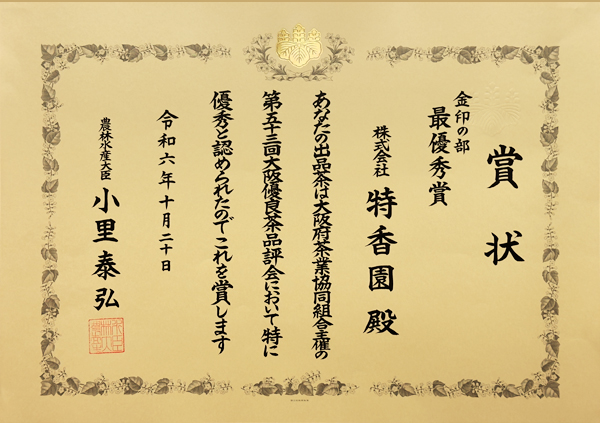 賞状
金印の部
最優秀賞
株式会社 特香園殿
あなたの出品茶は大阪府茶業協同組合主催の
第五十三回大阪優良茶品評会において特に
優秀と認められたのでこれを賞します
令和六年十月二十日
農林水産大臣 小里泰弘